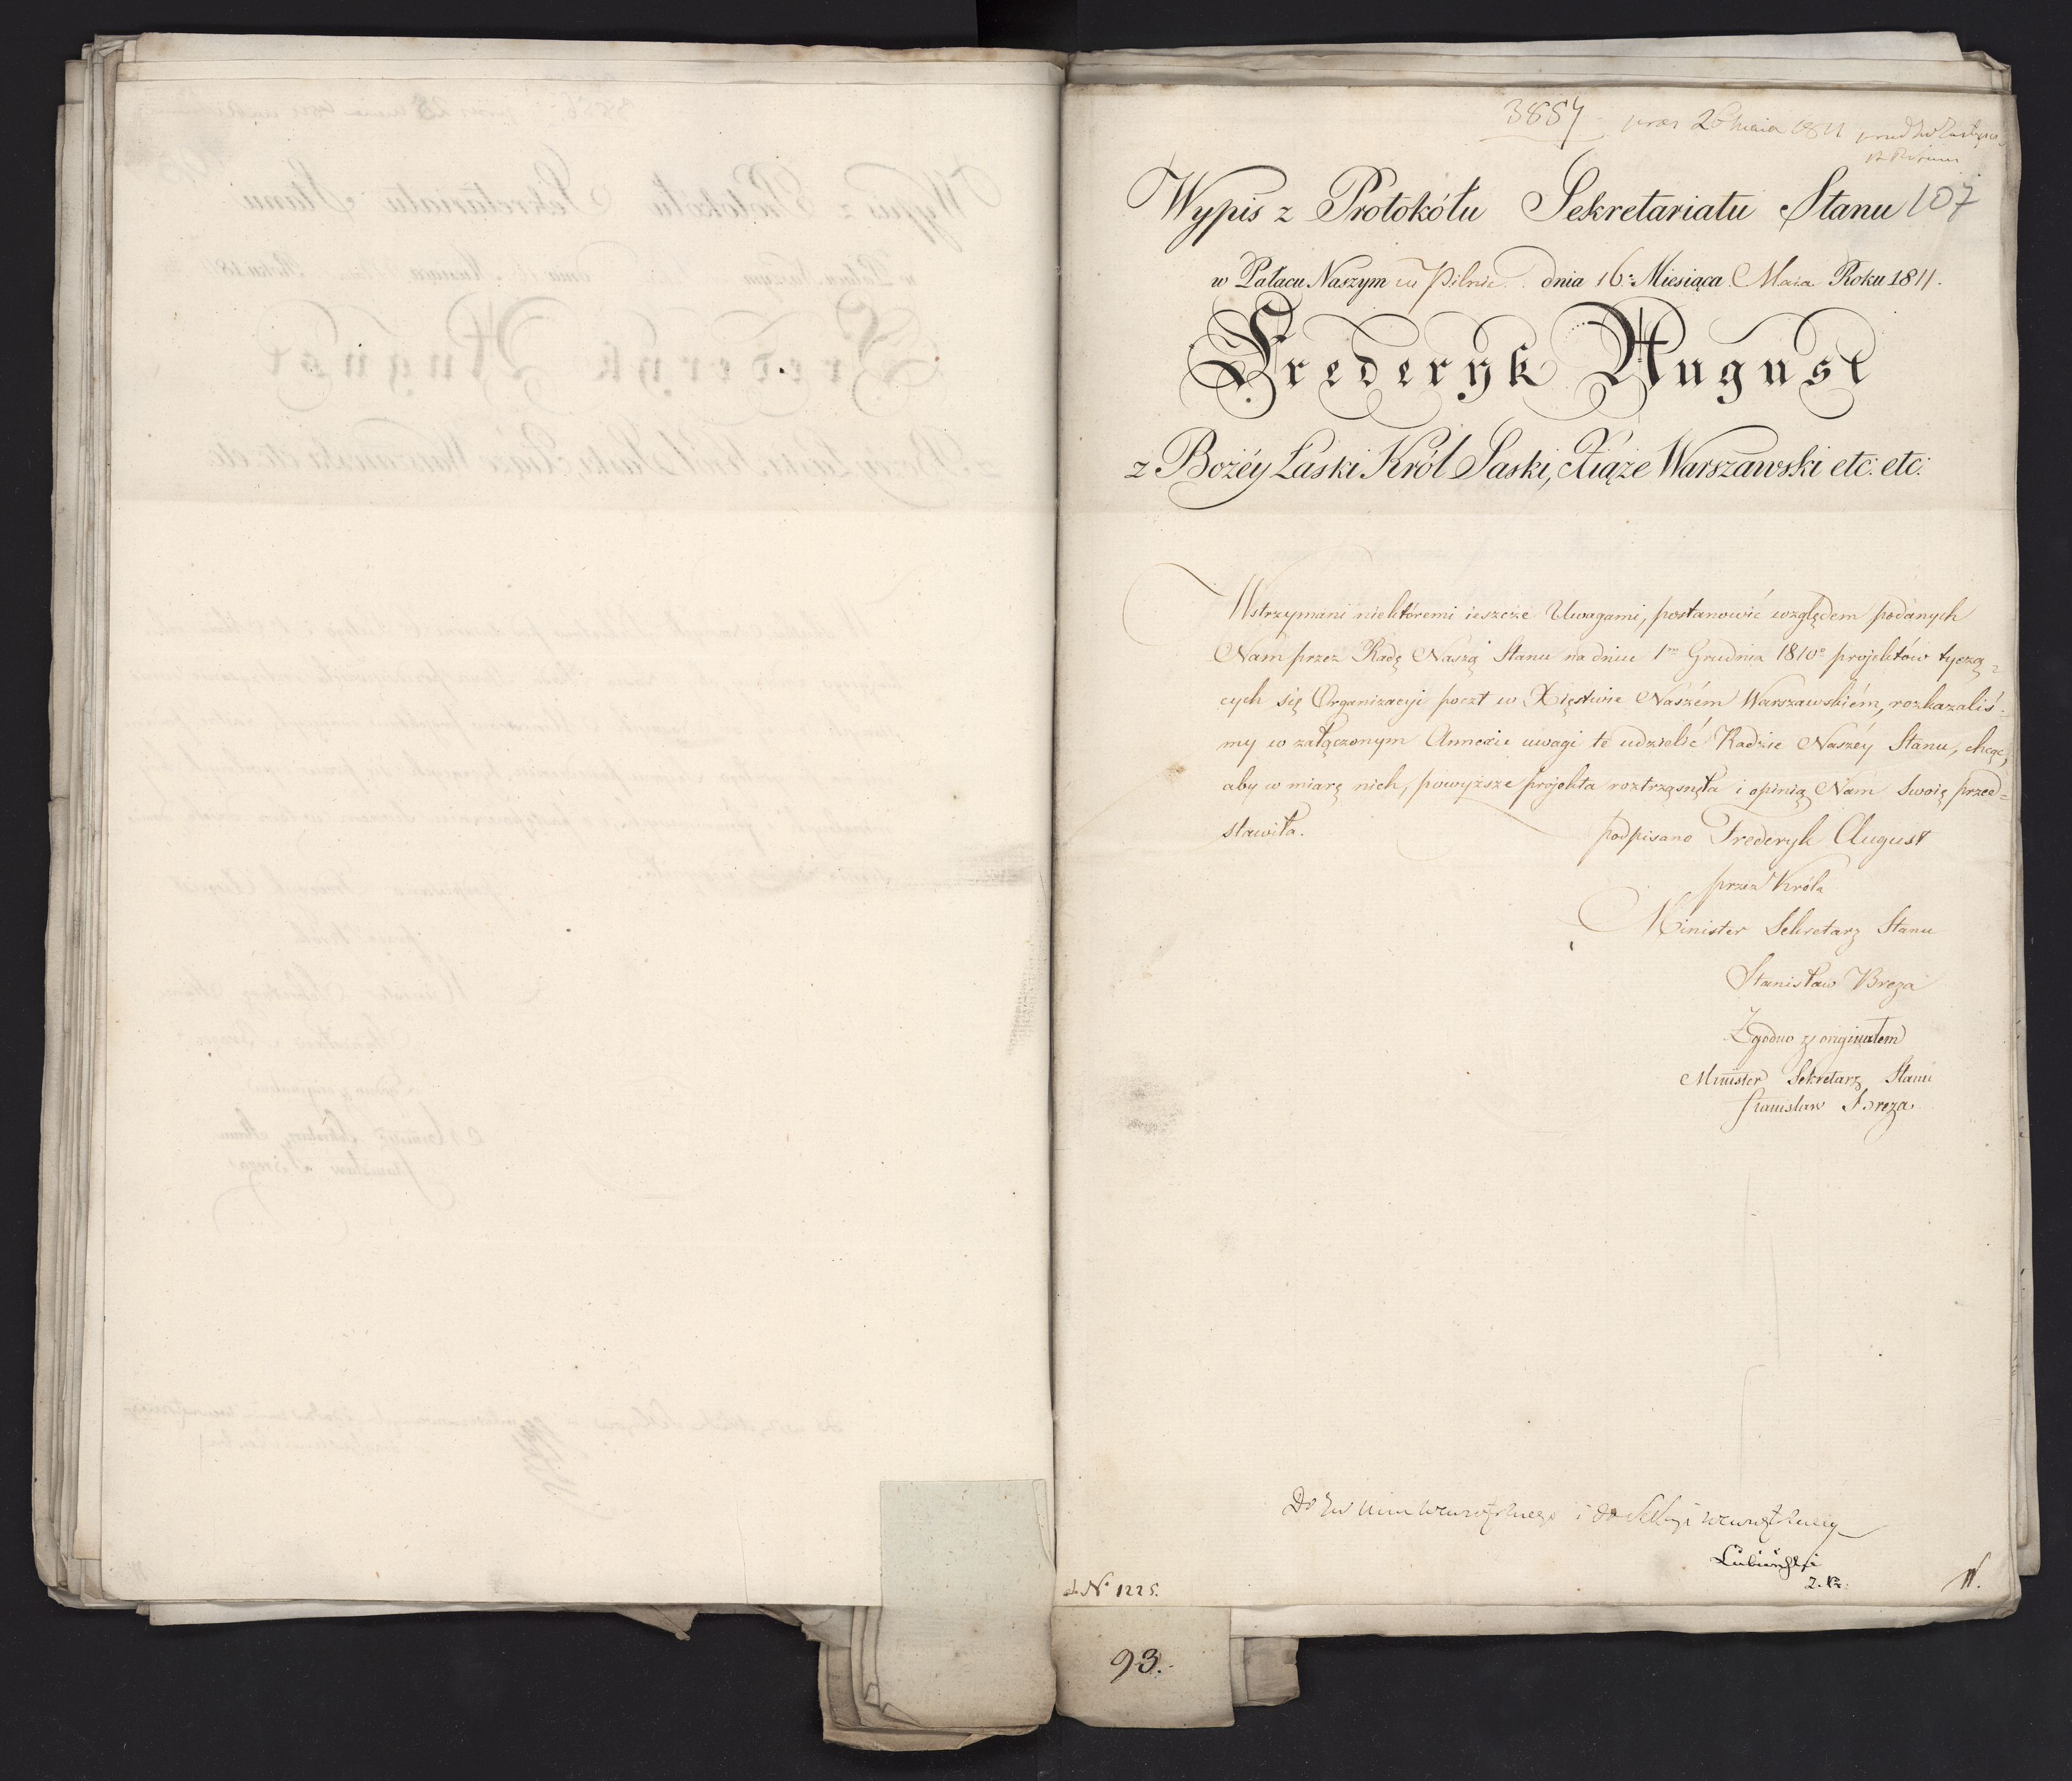 3884 praes 28 maia 1811
107
Wypis z Protokółu Sekretariatu Stanu
w Pałacu Naszym w Pilnic dnia 16. Miesiąca Maia Roku 1811.
Frederyk August
z Bożéy Łaski Król Saski, Xiąże Warszawski etc: etc:
Wstrzymani niektóremi ieszcze Uwagami, postanowić względem podanych
Nam przez Radę Naszą Stanu na dniu 1m Grudnia 1810o projektów tyczą=
cych się Organizacyi poczt w Xięstwie Naszém Warszawskiém, rozkazaliś=
my w załączonym Annexie uwagi te udzielić Radzie Naszéy Stanu, chcąc,
aby w miarę nich, powyższe projekta roztrząsnęła i opinią Nam Swoię przed=
stawiła.
podpisano Frederyk August
przez Króla
Minister Sekretarz Stanu
Stanisław Breza
Zgodno z originałem
Minister Sekretarz Stanu
Stanisław Breza
Do Min wewnętrznego i do Sekcyi wewnętrzney
Łubieński
ad No 1225.
93.